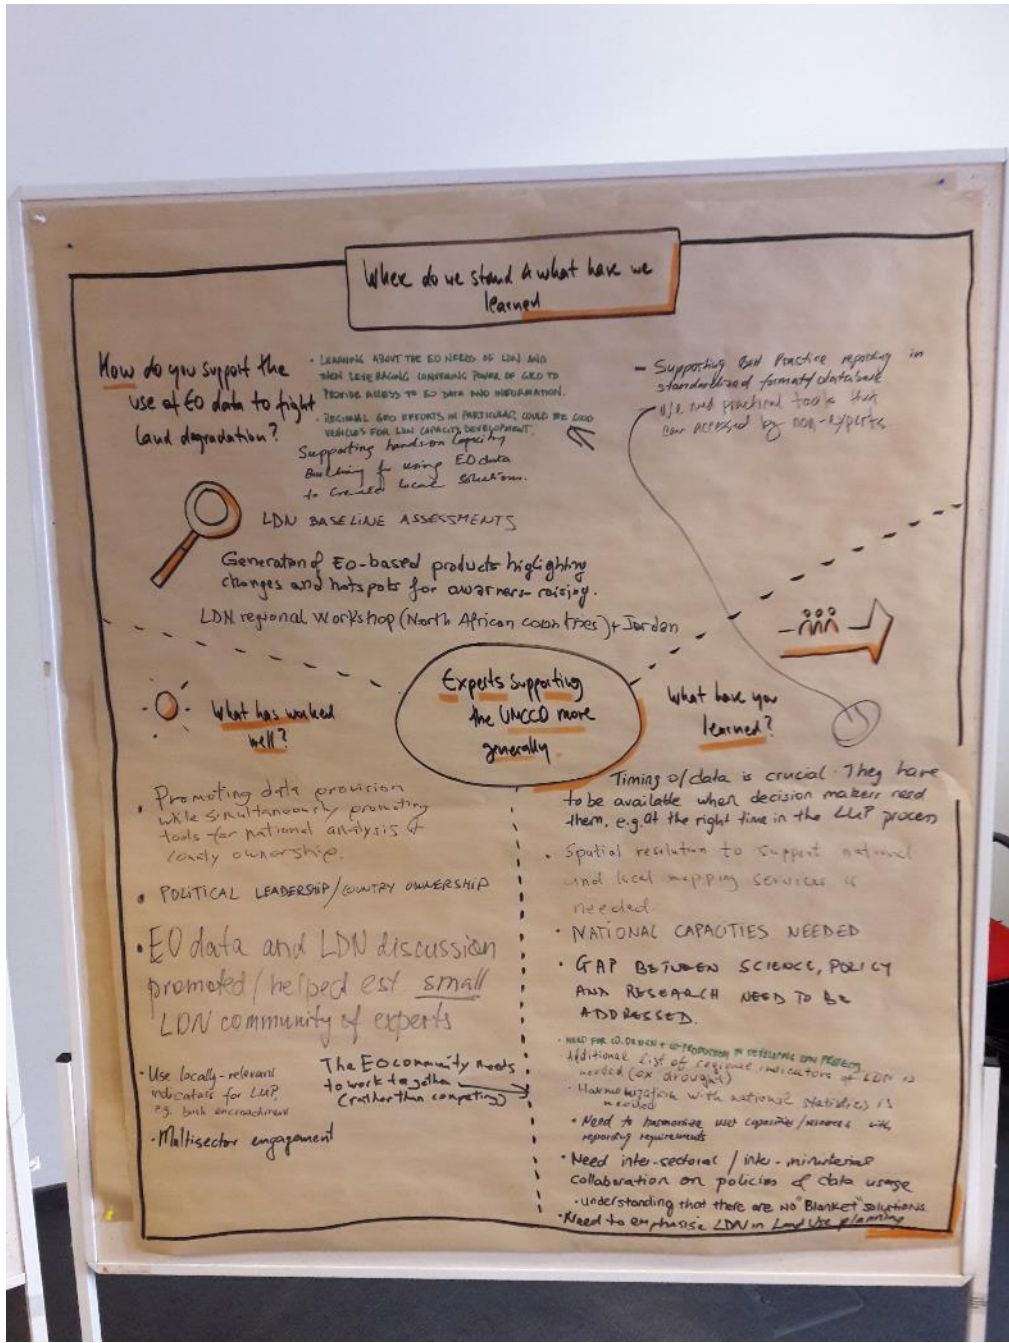 Where do we stand & what have we
learned
How do you support the
use of EO data to fight
land degradation?
• LEARNING ABOUT THE EO NEEDS OF LDN AND
THEN LEVERAGING CONVENING POWER OF GEO TO
PROVIDE ACCESS TO EO DATA AND INFORMATION.
• REGIONAL GEO EFFORTS IN PARTICULAR, COULD BE GOOD
VEHICLES FOR LDN CAPACITY DEVELOPMENT.
Supporting hands-on Capacity
Building for using EO data
to create local solutions.
– Supporting Best Practice reporting in
standardized format/database
practical tools that
can accessed by non-experts
LDN BASELINE ASSESSMENTS
Generation of EO-based products highlighting
changes and hotspots for awarness-raising.
LDN regional Workshop (North African countries) + Jordan
Experts supporting
the UNCCD more
generally
What has worked
well?
• Promoting data provision
while simultaneously promoting
tools for national analysis &
ownership.
• POLITICAL LEADERSHIP/COUNTRY OWNERSHIP
• EO data and LDN discussion
promoted/helped est small
LDN community of experts
• Use locally-relevant
indicators for LUP,
e.g. bush encroachment
• Multisector engagement
The EO community needs
to work together
(rather than competing)
What have you
learned?
Timing of data is crucial. They have
to be available when decision makers need
them, e.g. at the right time in the LUP process
• Spatial resolution to support national
and local mapping services is
needed
• NATIONAL CAPACITIES NEEDED
• GAP BETWEEN SCIENCE, POLICY
AND RESEARCH NEED TO BE
ADDRESSED.
• NEED FOR CO-DESIGN + CO-PRODUCTION IN DEVELOPING LDN
• Additional list of regional indicators of LDN is
needed (ex drought)
• Harmonization with national statistics is
needed
• Need to harmonise user capacities/resources with
reporting requirements
• Need inter-sectoral / inter-ministerial
collaboration on policies & data usage
• understanding that there are NO "Blanket" solutions
• Need to emphasise LDN in Land Use planning